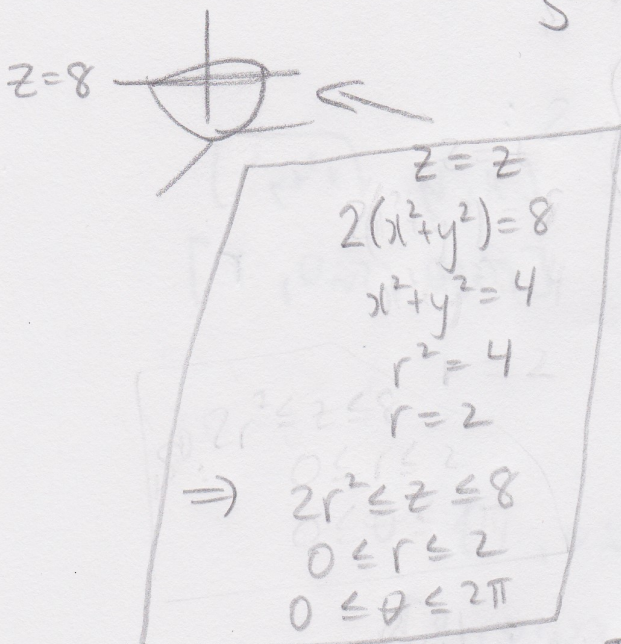 z=8
z = z
2(x²+y²)=8
x²+y²=4
r²=4
r=2
⇒ 2r²≤z≤8
0≤r≤2
0≤θ≤2π